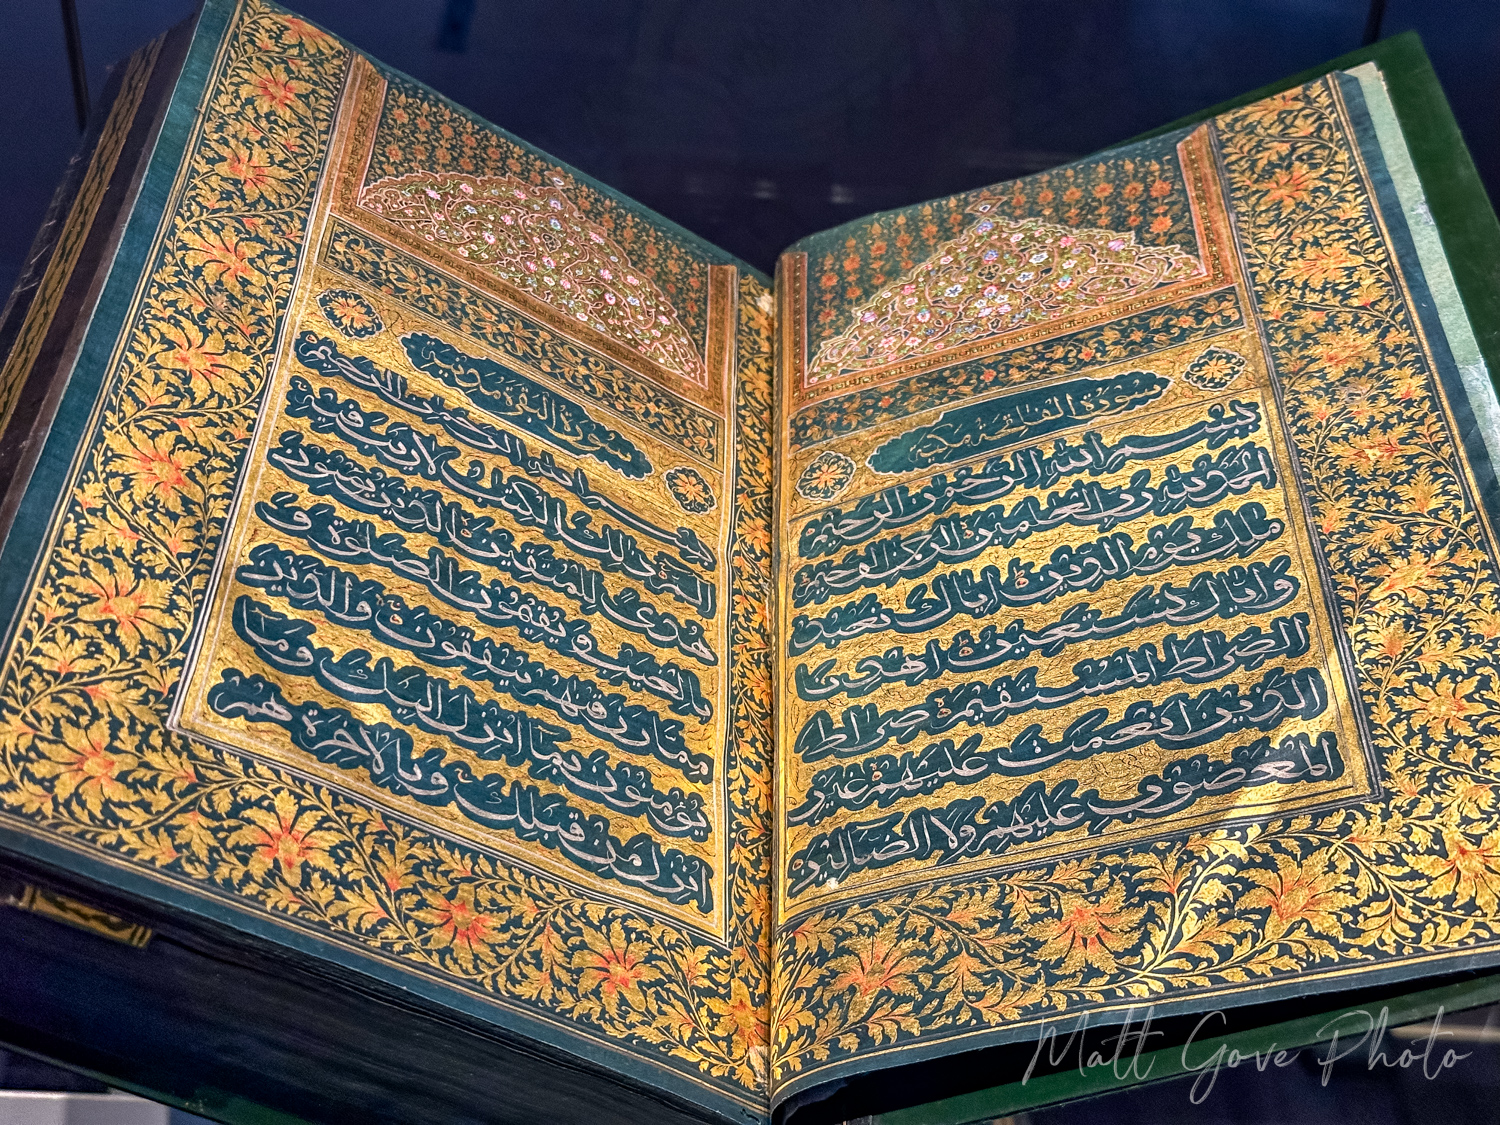 سورة الفاتحة مكية
بِسْمِ اللهِ الرَّحْمٰنِ الرَّحِيمِ
الْحَمْدُ لِلّٰهِ رَبِّ الْعٰلَمِينَ الرَّحْمٰنِ الرَّحِيمِ
مٰلِكِ يَوْمِ الدِّينِ اِيَّاكَ نَعْبُدُ
وَاِيَّاكَ نَسْتَعِينُ اِهْدِنَا
الصِّرَاطَ الْمُسْتَقِيمَ صِرَاطَ
الَّذِينَ اَنْعَمْتَ عَلَيْهِمْ غَيْرِ
الْمَغْضُوبِ عَلَيْهِمْ وَلَا الضَّالِّينَ
سورة البقرة مدنية
بِسْمِ اللهِ الرَّحْمٰنِ الرَّحِيمِ
الٓمٓ ذٰلِكَ الْكِتٰبُ لَا رَيْبَ فِيهِ
هُدًى لِلْمُتَّقِينَ الَّذِينَ يُؤْمِنُونَ
بِالْغَيْبِ وَيُقِيمُونَ الصَّلٰوةَ وَ
مِمَّا رَزَقْنٰهُمْ يُنْفِقُونَ وَالَّذِينَ
يُؤْمِنُونَ بِمَا اُنْزِلَ اِلَيْكَ وَمَا
اُنْزِلَ مِنْ قَبْلِكَ وَبِالْاٰخِرَةِ هُمْ
Matt Gove Photo